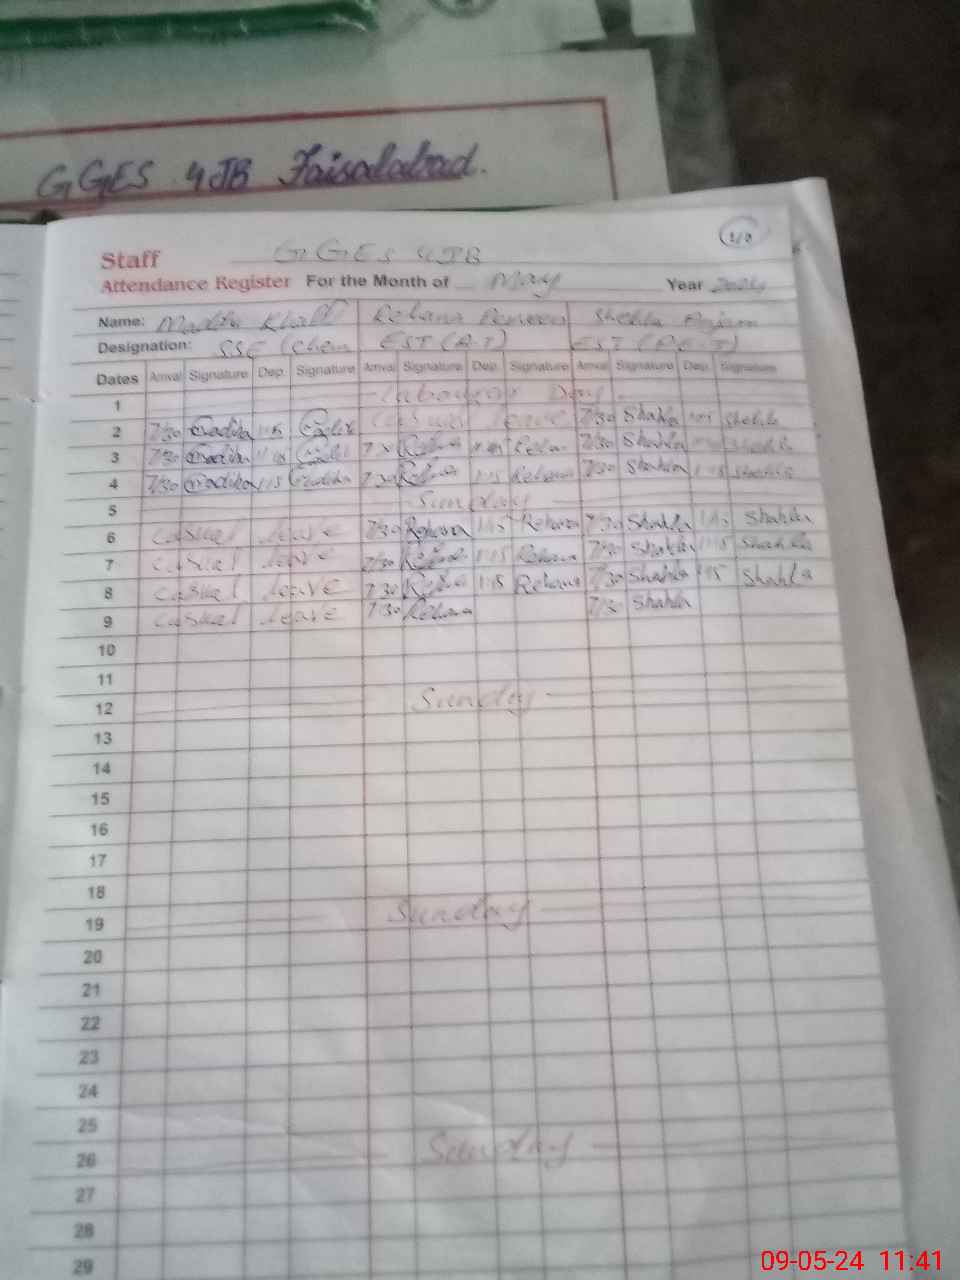 GGES 4JB Faisalabad.
1/0
Staff GGES 4JB
Attendance Register For the Month of May Year 2024
Name: Rehana Perveen Shehla Anjam
Designation: SSE (Chem EST (A-T) EST
Dates Arrival Signature Dep. Signature Arrival Signature Dep. Signature Arrival Signature Dep. Signature
1 Labour Day
2 7/30 Casual leave 7/30 Shahla Shehla
3 7/30 Rehana 7/30 Shahla
4 7/30 1:15 7/30 Rehana 1:15 Rehana 7/30 Shahla 1:15 Shahla
5 Sunday
6 casual leave 7/30 Rehana 1:15 Rehana 7/30 Shahla 1:15 Shahla
7 casual leave 7/30 Rehana 1:15 Rehana 7/30 Shahla 1:15 Shahla
8 casual leave 7/30 Rehana 1:15 Rehana 7/30 Shahla 1:15 Shahla
9 casual leave 7/30 Rehana 7/30 Shahla
10
11
12 Sunday
13
14
15
16
17
18
19 Sunday
20
21
22
23
24
25
26 Sunday
27
28
29
09-05-24 11:41